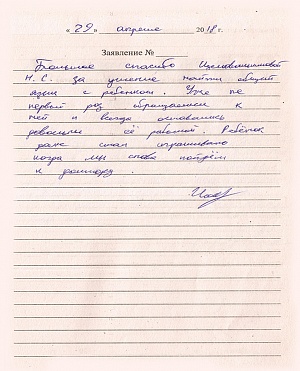 « 29 » апреля 2018 г.
Заявление №
Большое спасибо
Н.С. за умение найти общий
язык с ребенком. Уже не
первый раз обращаемся к
ней и всегда оставались
довольны её работой. Ребёнок
даже стал спрашивать
когда мы снова пойдём
к доктору.